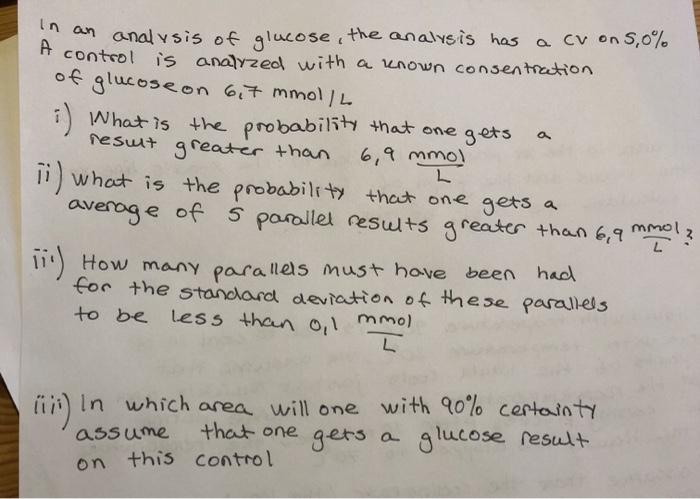 In an analysis of glucose, the analysis has a CV on 5,0%
A control is analyzed with a known consentration
of glucose on 6,7 mmol/L
i) What is the probability that one gets a
result greater than 6,9 mmol/L
ii) what is the probability that one gets a
average of 5 parallel results greater than 6,9 mmol/L?
iii) How many parallels must have been had
for the standard deviation of these parallels
to be less than 0,1 mmol/L
iiii) In which area will one with 90% certainty
assume that one gets a glucose result
on this control